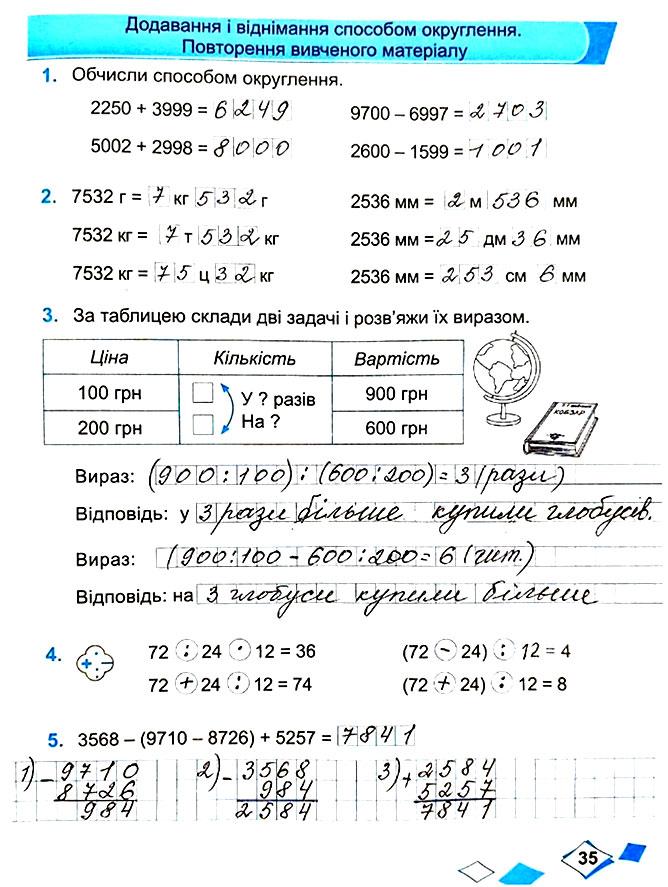 Додавання і віднімання способом округлення.
Повторення вивченого матеріалу
1. Обчисли способом округлення.
2250 + 3999 = 6249 9700 – 6997 = 2703
5002 + 2998 = 8000 2600 – 1599 = 1001
2. 7532 г = 7 кг 532 г 2536 мм = 2 м 536 мм
7532 кг = 7 т 532 кг 2536 мм = 25 дм 36 мм
7532 кг = 75 ц 32 кг 2536 мм = 253 см 6 мм
3. За таблицею склади дві задачі і розв'яжи їх виразом.
Ціна Кількість Вартість
100 грн У ? разів 900 грн
200 грн На ? 600 грн
КОБЗАР
Вираз: (900:100):(600:200)=3(рази)
Відповідь: у 3 рази більше купили глобусів.
Вираз: (900:100-600:200=6(шт.)
Відповідь: на 3 глобуси купили більше
4. + – · : 72 : 24 · 12 = 36 (72 – 24) : 12 = 4
72 + 24 : 12 = 74 (72 + 24) : 12 = 8
5. 3568 – (9710 – 8726) + 5257 = 7841
1) – 9710 2) – 3568 3) + 2584
8726 984 5257
984 2584 7841
35